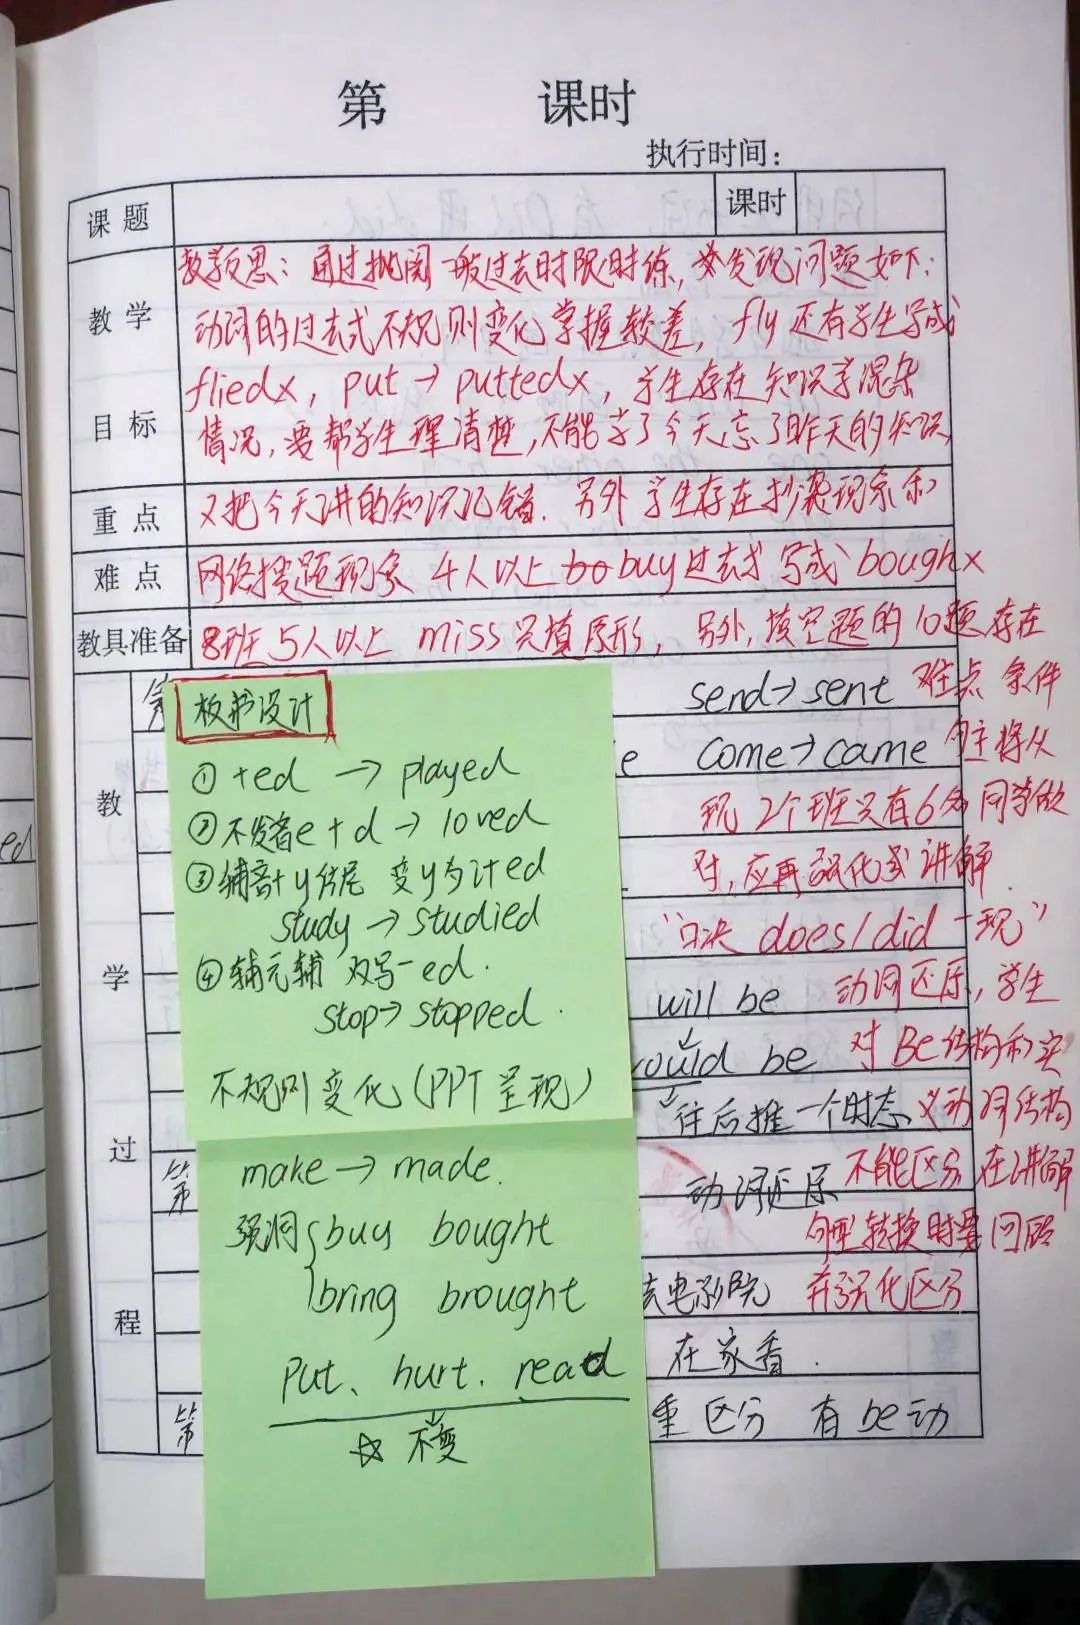 第 课时
执行时间：
课题 课时
教学目标
教学反思：通过批阅一般过去时限时练，发现问题如下：
动词的过去式不规则变化掌握较差，fly 还有学生写成
fliedx，put → puttedx，学生存在知识学混杂
情况，要帮学生理清楚，不能学了今天忘了昨天的知识
重点
又把今天讲的知识记错．另外学生存在抄袭现象和
难点
网络搜题现象 4人以上 buy过去式写成 boughx
教具准备
8班5人以上 miss 只填原形，另外，填空题的10题存在
教学过程
send→sent 难点 条件
e come→came 句主将从
现 2个班只有6名同学做
对，应再强化或讲解．
"口决 does/did 一现"
will be 动词还原，学生
would be 对 Be结构和实
往后推一个时态 义动词结构
第 动词还原 不能区分 在讲解
句型转换时要回顾
去电影院 并强化区分
在家看．
第 重区分 有be动
板书设计
① +ed → played
② 不发音e +d → loved
③ 辅音+y结尾 变y为i+ed
study → studied
④ 辅元辅 双写-ed．
stop→ stopped．
不规则变化（PPT呈现）
make → made．
buy bought
bring brought
put、hurt．read
☆ 不变
ed